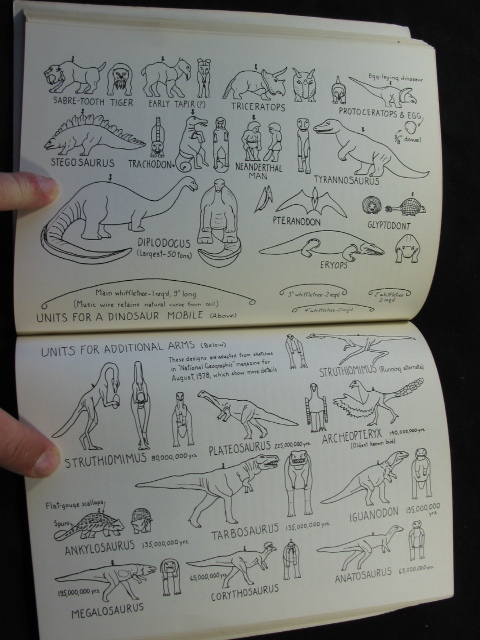 Egg-laying dinosaur
SABRE-TOOTH TIGER
EARLY TAPIR (?)
TRICERATOPS
PROTOCERATOPS & EGG
STEGOSAURUS
TRACHODON
NEANDERTHAL
MAN
TYRANNOSAURUS
PTERANODON
GLYPTODONT
DIPLODOCUS
(Largest-50 tons)
ERYOPS
Main whiffletree-1 req'd, 9" long
(Music wire retains natural curve from coil)
UNITS FOR A DINOSAUR MOBILE (Above)
UNITS FOR ADDITIONAL ARMS (Below)
These designs are adapted from sketches
in "National Geographic" magazine for
August, 1978, which show more details
STRUTHIOMIMUS (Running alternate)
STRUTHIOMIMUS 80,000,000 yrs.
PLATEOSAURUS 225,000,000 yrs.
ARCHEOPTERYX 140,000,000 yrs.
(Oldest known bird)
Flat-gouge scallops
Spurs
ANKYLOSAURUS 135,000,000 yrs.
TARBOSAURUS 135,000,000 yrs.
IGUANODON 135,000,000
yrs.
195,000,000 yrs.
MEGALOSAURUS
65,000,000 yrs.
CORYTHOSAURUS
ANATOSAURUS 65,000,000 yrs.